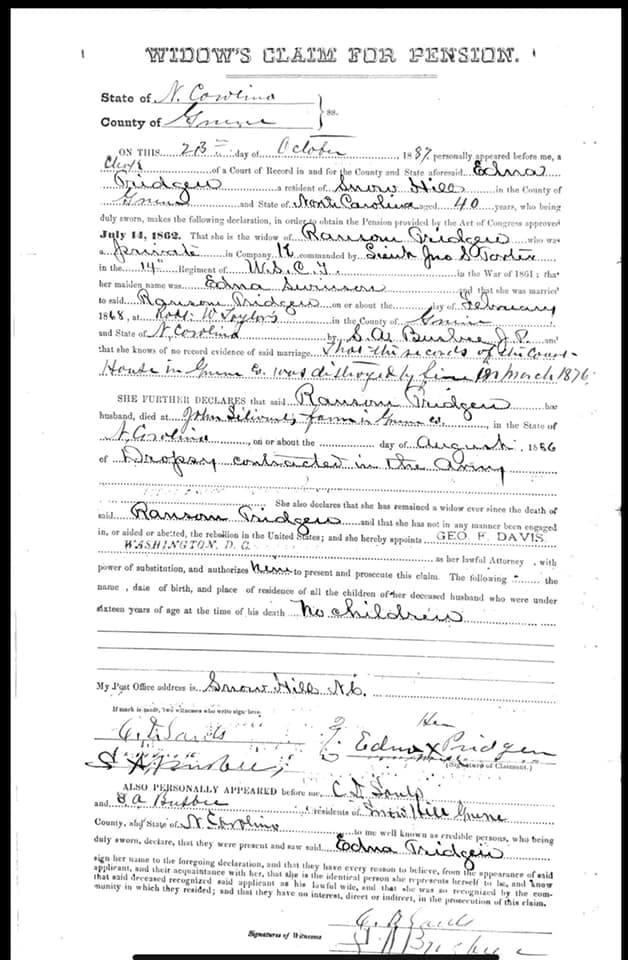 WIDOW'S CLAIM FOR PENSION.
State of N. Carolina
County of Greene } ss.
ON THIS 23 day of October 1887 personally appeared before me, a
Clerk of a Court of Record in and for the County and State aforesaid Edna
Pridgen a resident of Snow Hill in the County of
Greene and State of North Carolina aged 40 years, who being
duly sworn, makes the following declaration, in order to obtain the Pension provided by the Act of Congress approved
July 14, 1862. That she is the widow of Ransom Pridgen who was
a private in Company K commanded by Lieut Jno S Porter
in the 14" Regiment of U.S.C.T. in the War of 1861; that
her maiden name was Edna Swinson and that she was married
to said Ransom Pridgen on or about the day of February
1868, at Robt W Taylors in the County of Greene
and State of N Carolina by S. A. Busbee J. P. and
that she knows of no record evidence of said marriage. That the records of the Court
House in Greene Co. was distroyed by fire in March 1876
SHE FURTHER DECLARES that said Ransom Pridgen her
husband, died at John farm in Greene Co., in the State of
N Carolina, on or about the day of August, 1886
of Dropsy contracted in the Army
She also declares that she has remained a widow ever since the death of
said Ransom Pridgen and that she has not in any manner been engaged
in, or aided or abetted, the rebellion in the United States; and she hereby appoints GEO. F. DAVIS,
WASHINGTON, D. C. as her lawful Attorney, with
power of substitution, and authorizes him to present and prosecute this claim. The following the
name, date of birth, and place of residence of all the children of her deceased husband who were under
sixteen years of age at the time of his death No children
My Post Office address is Snow Hill N.C.
If mark is made, two witnesses who write sign here.
Her
Edna X Pridgen
S A Busbee,
(Signature of Claimant.)
ALSO PERSONALLY APPEARED before me, C. D.
and S A Busbee residents of Snow Hill Greene
County, and State of N Carolina to me well known as credible persons, who being
duly sworn, declare, that they were present and saw said Edna Pridgen
sign her name to the foregoing declaration, and that they have every reason to believe, from the appearance of said
applicant, and their acquaintance with her, that she is the identical person she represents herself to be, and know
that said deceased recognized said applicant as his lawful wife, and that she was so recognized by the com-
munity in which they resided; and that they have no interest, direct or indirect, in the prosecution of this claim.
Signatures of Witnesses
S A Busbee